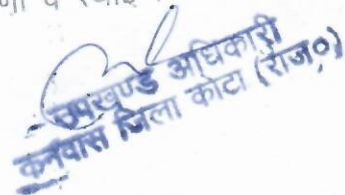 उपखण्ड अधिकारी
कनवास जिला कोटा (राज॰)